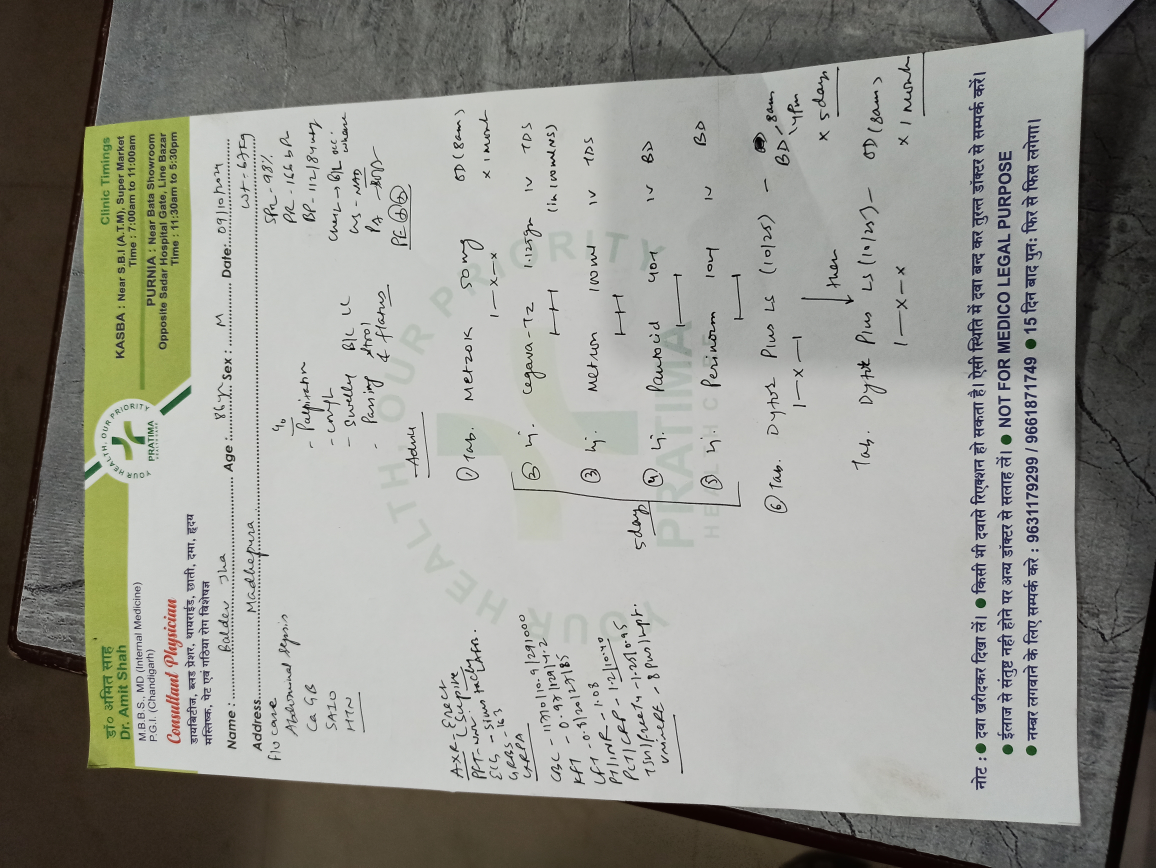 डॉ० अमित साह
Dr. Amit Shah
M.B.B.S., MD (Internal Medicine)
P.G.I. (Chandigarh)
Consultant Physician
डायबिटीज, ब्लड प्रेशर, थायराईड, छाती, दमा, हृदय
मस्तिष्क, पेट एवं गठिया रोग विशेषज्ञ
YOUR HEALTH, OUR PRIORITY
PRATIMA
Clinic Timings
KASBA : Near S.B.I (A.T.M), Super Market
Time : 7:00am to 11:00am
PURNIA : Near Bata Showroom
Opposite Sadar Hospital Gate, Line Bazar
Time : 11:30am to 5:30pm
Name : Baldev Jha Age : 86 yr Sex : M Date: 09/10/2024
Address Madhepura Wt - 67kg
F/U case
Abdominal sepsis
Ca GB
SAIO
HTN
c/o
- Palpitation
- Cough
- Swelling B/L LL
- Passing stool & flatus
SPO2 - 98%
PR - 166 bpm
BP - 112/84 mmHg
Chest → B/L occ. wheeze
CVS - NAD
P/A -
PE
AXR - Erect / Supine
ECG - Sinus tachy
GRBS - 163
CBC - 11710/10.9/291000
KFT - 0.97/129/4.2
PT/INR - 1.08
Advise
① Tab. Metzok 50mg OD (8am)
1—x—x x 1 month
② Inj. Cegava-TZ 1.125gm IV TDS
(in 100ml NS)
③ Inj. Metron 100ml IV TDS
④ Inj. Pantocid 40mg IV BD
⑤ Inj. Perinorm 10mg IV BD
5 days
⑥ Tab. Dytor Plus LS (10/25) — BD, 8am
4pm
1—x—1 x 5 days
↓ then
Tab. Dytor Plus LS (10/25) — OD (8am)
1—x—x x 1 month
YOUR HEALTH, OUR PRIORITY
PRATIMA
HEALTHCARE
नोट : ● दवा खरीदकर दिखा लें। ● किसी भी दवासे रिएक्शन हो सकता है। ऐसी स्थिति में दवा बन्द कर तुरन्त डॉक्टर से सम्पर्क करें।
● ईलाज से संतुष्ट नही होने पर अन्य डॉक्टर से सलाह लें। ● NOT FOR MEDICO LEGAL PURPOSE
● नम्बर लगवाने के लिए सम्पर्क करे : 9631179299 / 9661871749 ● 15 दिन बाद पुनः फिर से फिस लगेगा।